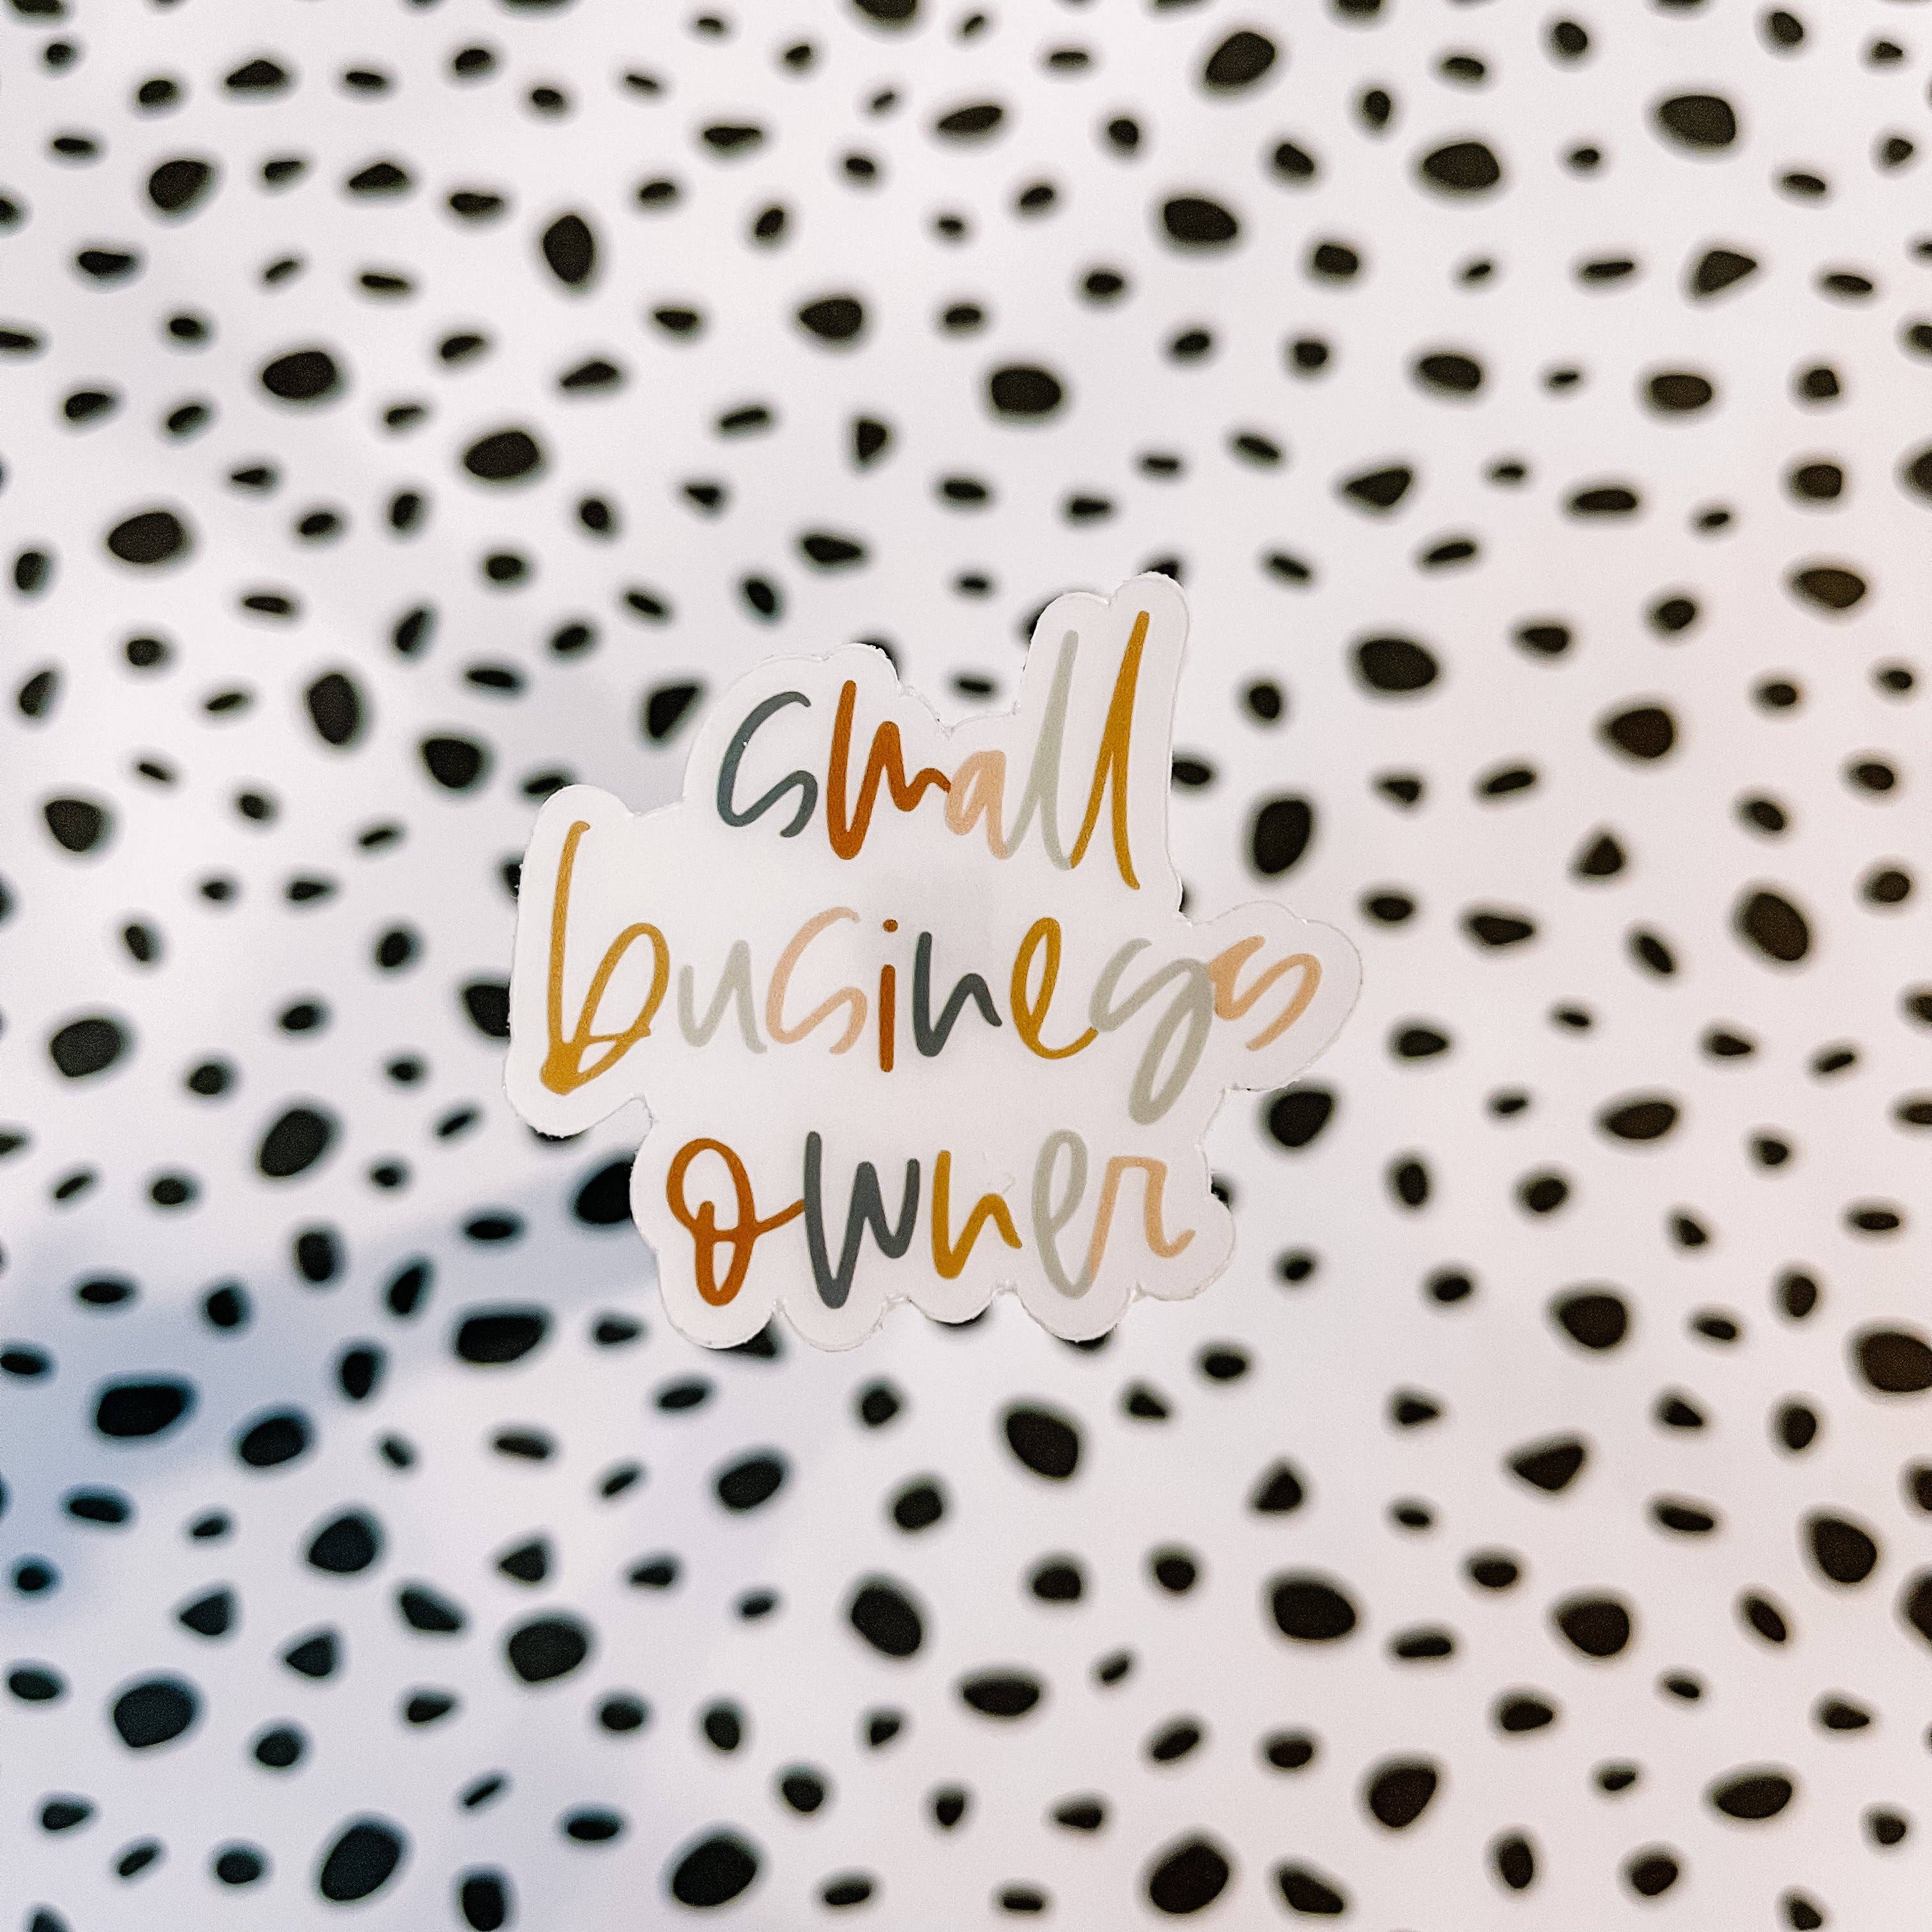 small
business
owner